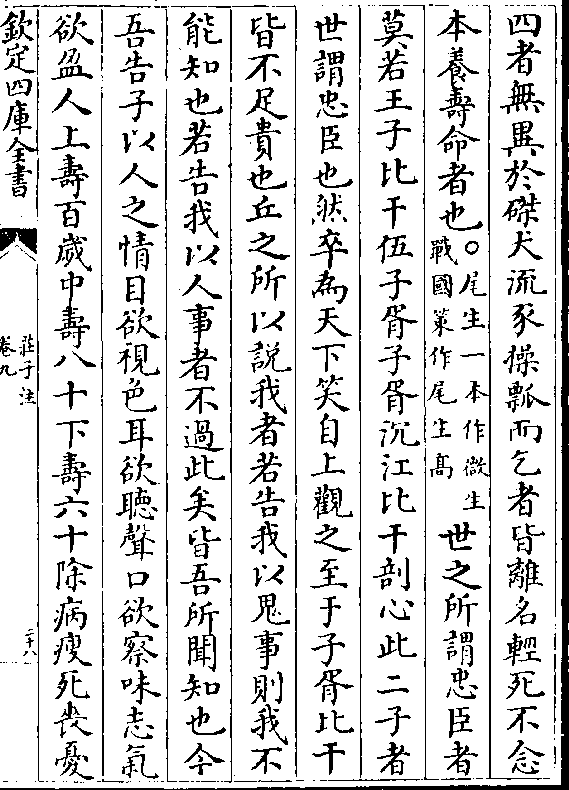 四者無異於磔犬流豕操瓢而乞者皆離名輕死不念
本養壽命者也○尾生一本作微生戰國策作尾生髙世之所謂忠臣者
莫若王子比干伍子胥子胥沉江比干剖心此二子者
世謂忠臣也然卒為天下笑自上觀之至于子胥比干
皆不足貴也丘之所以說我者若告我以鬼事則我不
能知也若告我以人事者不過此矣皆吾所聞知也今
吾告子以人之情目欲視色耳欲聽聲口欲察味志氣
欲盈人上壽百歲中壽八十下壽六十除病瘦死喪憂
欽定四庫全書
莊子注
卷九
二十八